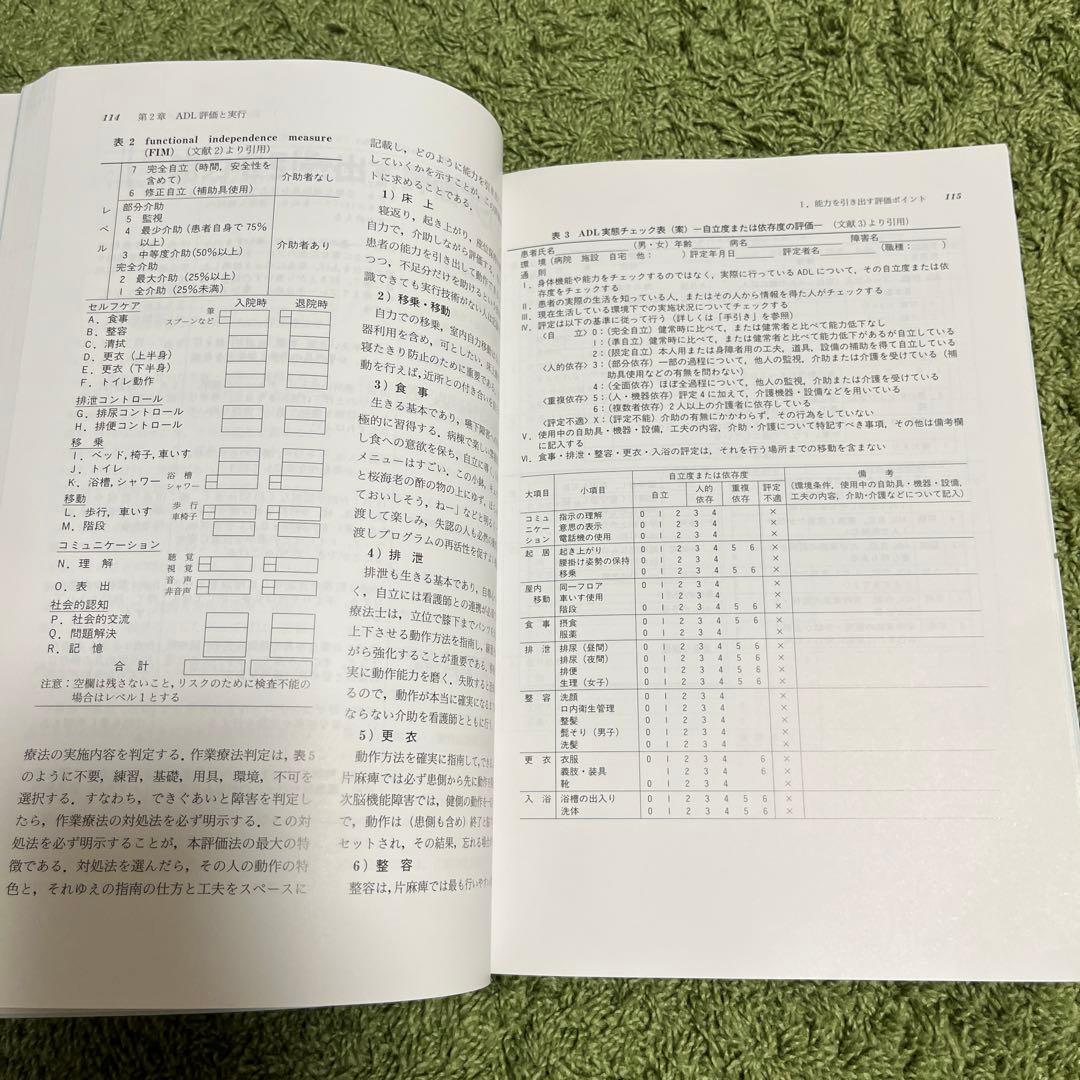 114 第2章 ADL評価と実行
表2 functional independence measure
(FIM) (文献2)より引用)
7 完全自立(時間,安全性を
含めて)
6 修正自立(補助具使用)
介助者なし
レベル
部分介助
5 監視
4 最少介助(患者自身で75%
以上)
3 中等度介助(50%以上)
完全介助
2 最大介助(25%以上)
1 全介助(25%未満)
介助者あり
セルフケア 入院時 退院時
A.食事 箸 スプーンなど
B.整容
C.清拭
D.更衣(上半身)
E.更衣(下半身)
F.トイレ動作
排泄コントロール
G.排尿コントロール
H.排便コントロール
移 乗
I.ベッド,椅子,車いす
J.トイレ
K.浴槽,シャワー 浴槽 シャワー
移動
L.歩行,車いす 歩行 車椅子
M.階段
コミュニケーション
N.理 解 聴覚 視覚
O.表 出 音声 非音声
社会的認知
P.社会的交流
Q.問題解決
R.記 憶
合 計
注意:空欄は残さないこと,リスクのために検査不能の
場合はレベル1とする
療法の実施内容を判定する.作業療法判定は,表5
のように不要,練習,基礎,用具,環境,不可を
選択する.すなわち,できぐあいと障害を判定し
たら,作業療法の対処法を必ず明示する.この対
処法を必ず明示することが,本評価法の最大の特
徴である.対処法を選んだら,その人の動作の特
色と,それゆえの指南の仕方と工夫をスペースに
記載し,どのように能力を引き
していくかを示すことが,この
トに求めることである.
1)床 上
寝返り,起き上がり,座位
自力で,介助しながら評価する.
患者の能力を引き出して動作
つつ,不足分だけを助けるという
識できても実行技術がない人は
2)移乗・移動
自力での移乗,室内自力移動
器利用を含め,可としたい.床上
寝たきり防止のために重要である.
動を行えば,近所との付き合いを
3)食 事
生きる基本であり,嚥下障害への
極的に習得する.病棟で楽しい雰
し食への意欲を保ち,自立に導く.
メニューはすごい,この小鉢,
と桜海老の酢の物の上にゆず,
ておいしそう,ねー」などと明る
渡して楽しみ,失認の人も必然
渡しプログラムの再活性を促す
4)排 泄
排泄も生きる基本であり,自尊
く,自立には看護師との連携が
療法士は,立位で膝下までパンツを
上下させる動作方法を指南し,
がら強化することが重要である.
実に動作能力を磨く.失敗すると
るので,動作が本当に確実になる
ならない介助を看護師とともに行
5)更 衣
動作方法を確実に指南して,でき
片麻痺では必ず患側から先に動作
次脳機能障害では,健側の動作を
で,動作は(患側も含め)終了と
セットされ,その結果,忘れる
6)整 容
整容は,片麻痺では最も行いやすい
1.能力を引き出す評価ポイント 115
表3 ADL実態チェック表(案) ―自立度または依存度の評価― (文献3)より引用)
患者氏名 (男・女)年齢 病名 障害名
環 境(病院 施設 自宅 他: )評定年月日 評定者名 (職種: )
通 則
Ⅰ.身体機能や能力をチェックするのではなく,実際に行っているADLについて,その自立度または依
存度をチェックする
Ⅱ.患者の実際の生活を知っている人,またはその人から情報を得た人がチェックする
Ⅲ.現在生活している環境下での実施状況についてチェックする
Ⅳ.評定は以下の基準に従って行う(詳しくは「手引き」を参照)
〈自 立〉0:(完全自立)健常時に比べて,または健常者と比べて能力低下なし
1:(準自立)健常時に比べて,または健常者と比べて能力低下があるが自立している
2:(限定自立)本人用または身障者用の工夫,道具,設備の補助を得て自立している
〈人的依存〉3:(部分依存)一部の過程について,他人の監視,介助または介護を受けている(補
助具使用などの有無を問わない)
4:(全面依存)ほぼ全過程について,他人の監視,介助または介護を受けている
〈重複依存〉5:(人・機器依存)評定4に加えて,介護機器・設備などを用いている
6:(複数者依存)2人以上の介護者に依存している
〈評定不適〉X:(評定不能)介助の有無にかかわらず,その行為をしていない
Ⅴ.使用中の自助具・機器・設備,工夫の内容,介助・介護について特記すべき事項,その他は備考欄
に記入する
Ⅵ.食事・排泄・整容・更衣・入浴の評定は,それを行う場所までの移動を含まない
自立度または依存度 備 考
大項目 小項目 自立 人的依存 重複依存 評定不適 (環境条件,使用中の自助具・機器・設備,
工夫の内容,介助・介護などについて記入)
コミュニケーション 指示の理解 0 1 2 3 4 ×
意思の表示 0 1 2 3 4 ×
電話機の使用 0 1 2 3 4 ×
起 居 起き上がり 0 1 2 3 4 5 6 ×
腰掛け姿勢の保持 0 1 2 3 4 ×
移乗 0 1 2 3 4 5 6 ×
屋内移動 同一フロア 0 1 2 3 4 ×
車いす使用 1 2 3 4 ×
階段 0 1 2 3 4 5 6 ×
食 事 摂食 0 1 2 3 4 5 6 ×
服薬 0 1 2 3 4 ×
排 泄 排尿(昼間) 0 1 2 3 4 5 6 ×
排尿(夜間) 0 1 2 3 4 5 6 ×
排便 0 1 2 3 4 5 6 ×
生理(女子) 0 1 2 3 4 5 6 ×
整 容 洗顔 0 1 2 3 4 ×
口内衛生管理 0 1 2 3 4 ×
整髪 0 1 2 3 4 ×
髭そり(男子) 0 1 2 3 4 ×
洗髪 0 1 2 3 4 ×
更 衣 衣服 0 1 2 3 4 6 ×
義肢・装具 1 2 3 4 6 ×
靴 0 1 2 3 4 ×
入 浴 浴槽の出入り 0 1 2 3 4 5 6 ×
洗体 0 1 2 3 4 5 6 ×